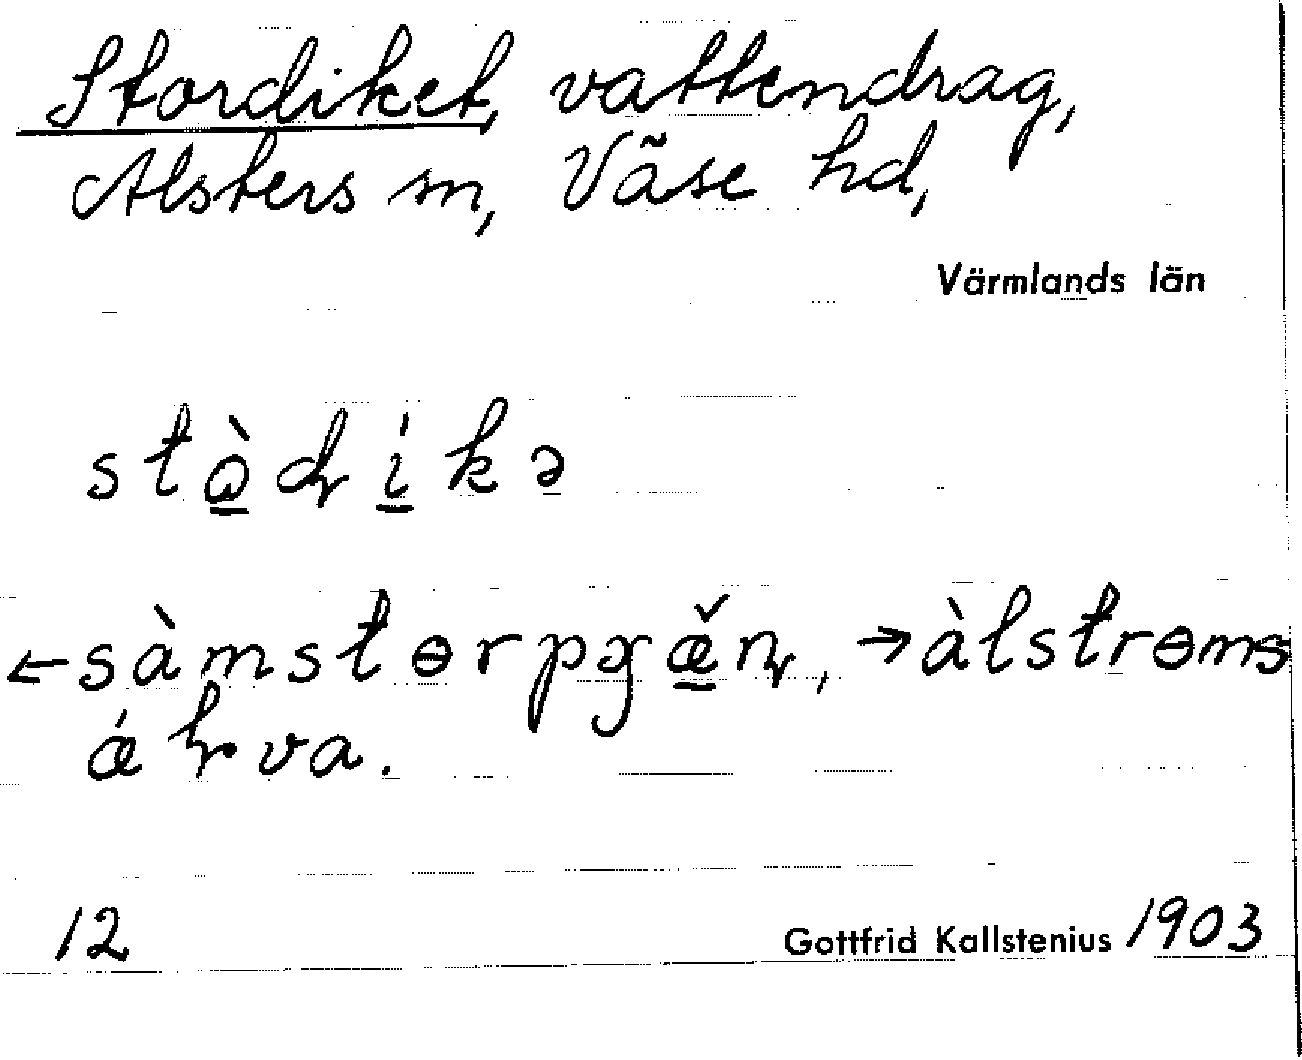 Stordiket, vattendrag,
Alsters sn, Väse hd,
Värmlands län
stɷ̀ɖíkə
←sàmstɵrpɟæ̌ɳ, →àlstrɵms
ǽɽva.
12 Gottfrid Kallstenius 1903